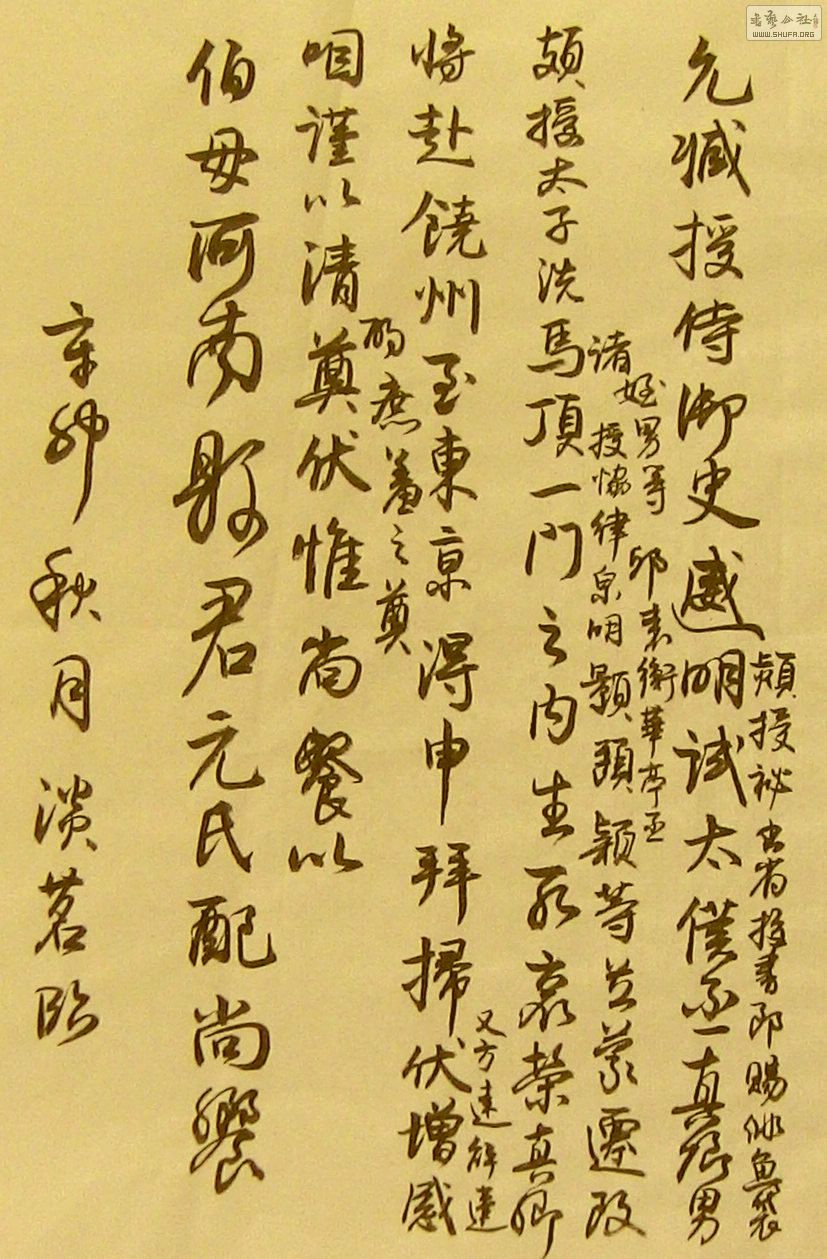 書藝公社
WWW.SHUFA.ORG
授祕書省挍書郎賜緋魚袋
允臧授侍御史威明試太僕丞真卿男
衛華亭丞
諸姪男等
授恊律泉明顥頭頴等並蒙遷改
頗授太子洗馬頂一門之內生死哀榮真卿
又方遠辞違
將赴饒州至東京得申拜掃伏增感
酌庶羞之奠
咽謹以清奠伏惟尚餐以
伯母河南縣君元氏配尚饗
辛卯秋月 茗臨